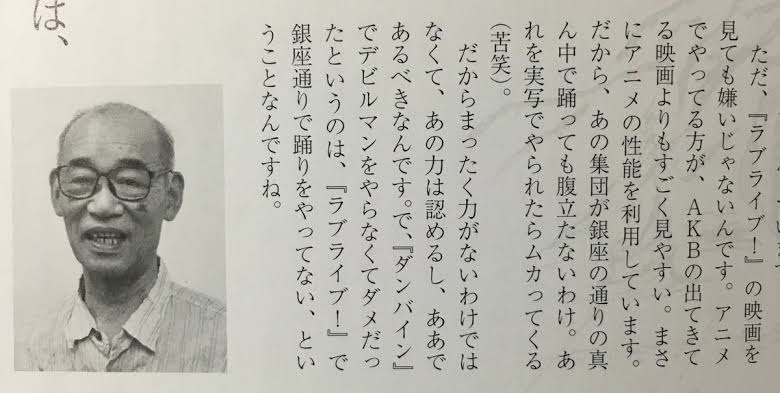 ただ、『ラブライブ！』の映画を
見ても嫌いじゃないんです。アニメ
でやってる方が、ＡＫＢの出てきて
る映画よりもすごく見やすい。まさ
にアニメの性能を利用しています。
だから、あの集団が銀座の通りの真
ん中で踊っても腹立たないわけ。あ
れを実写でやられたらムカってくる
（苦笑）。
だからまったく力がないわけでは
なくて、あの力は認めるし、ああで
あるべきなんです。で、『ダンバイン』
でデビルマンをやらなくてダメだっ
たというのは、『ラブライブ！』で
銀座通りで踊りをやってない、とい
うことなんですね。
は、